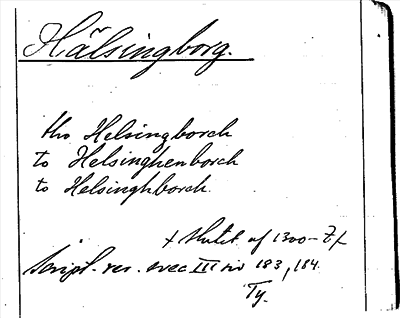 Hälsingborg.
tho Helsingborch
to Helsinghenborch
to Helsinghborch.
+ slutet af 1300-t
Script. rer. svec III s. 183, 184.
Ty.